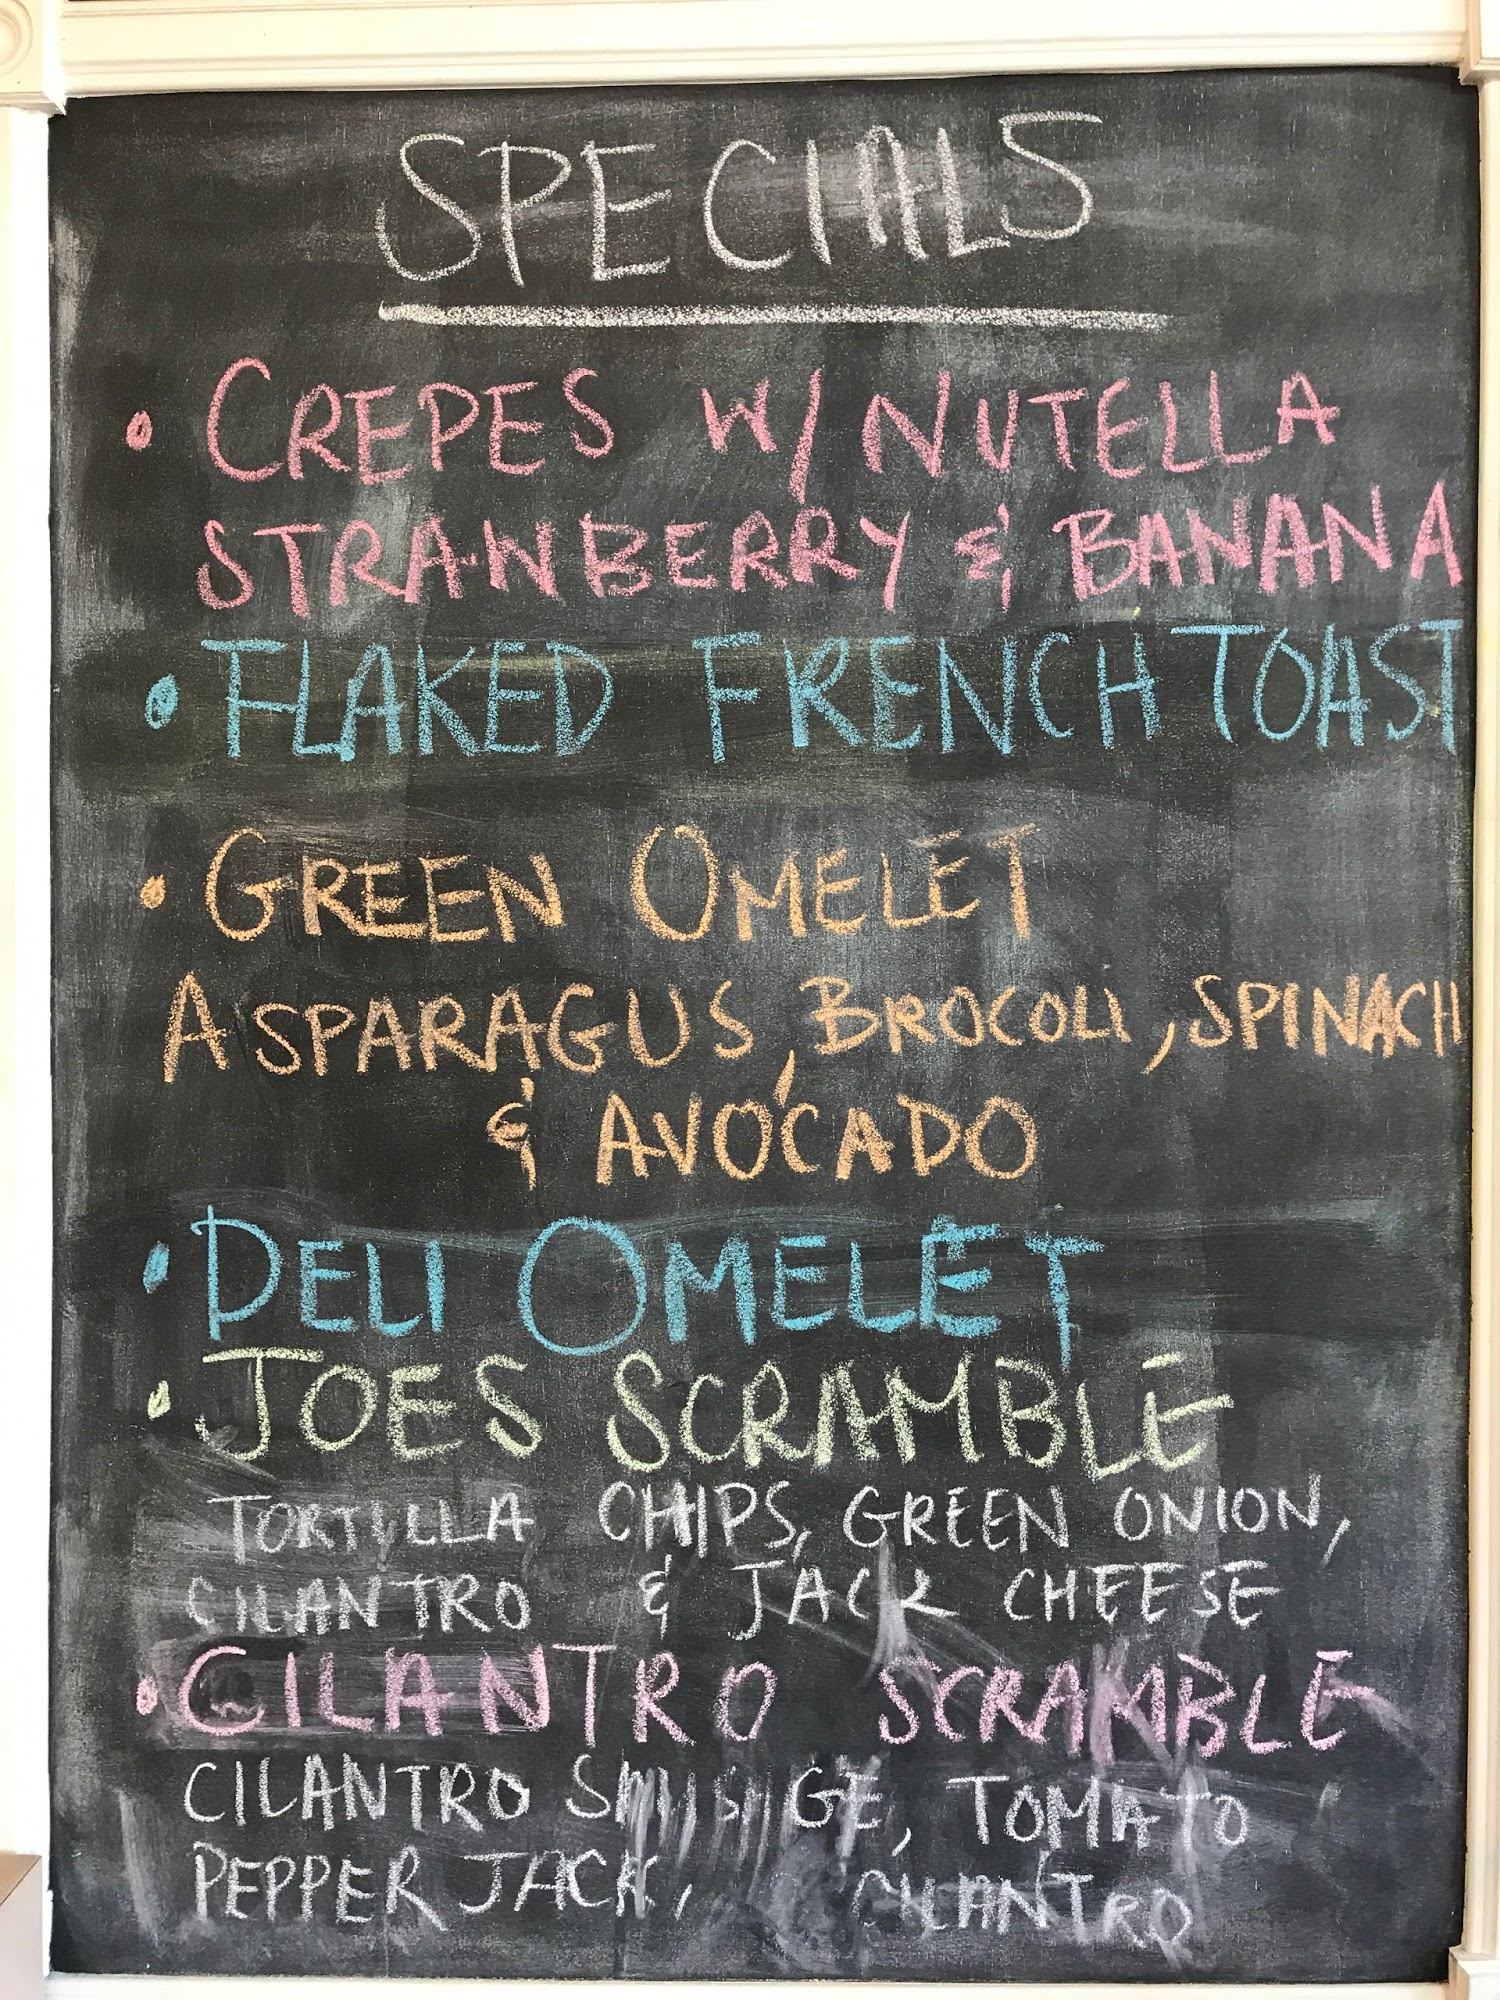 SPECIALS
• CREPES W/ NUTELLA
STRAWBERRY & BANANA
• FLAKED FRENCH TOAST
• GREEN OMELET
ASPARAGUS, BROCOLI, SPINACH
& AVOCADO
• DELI OMELET
• JOES SCRAMBLE
TORTYLLA CHIPS, GREEN ONION,
CILANTRO & JACK CHEESE
• CILANTRO SCRAMBLE
CILANTRO SAUSAGE, TOMATO
PEPPER JACK, CILANTRO